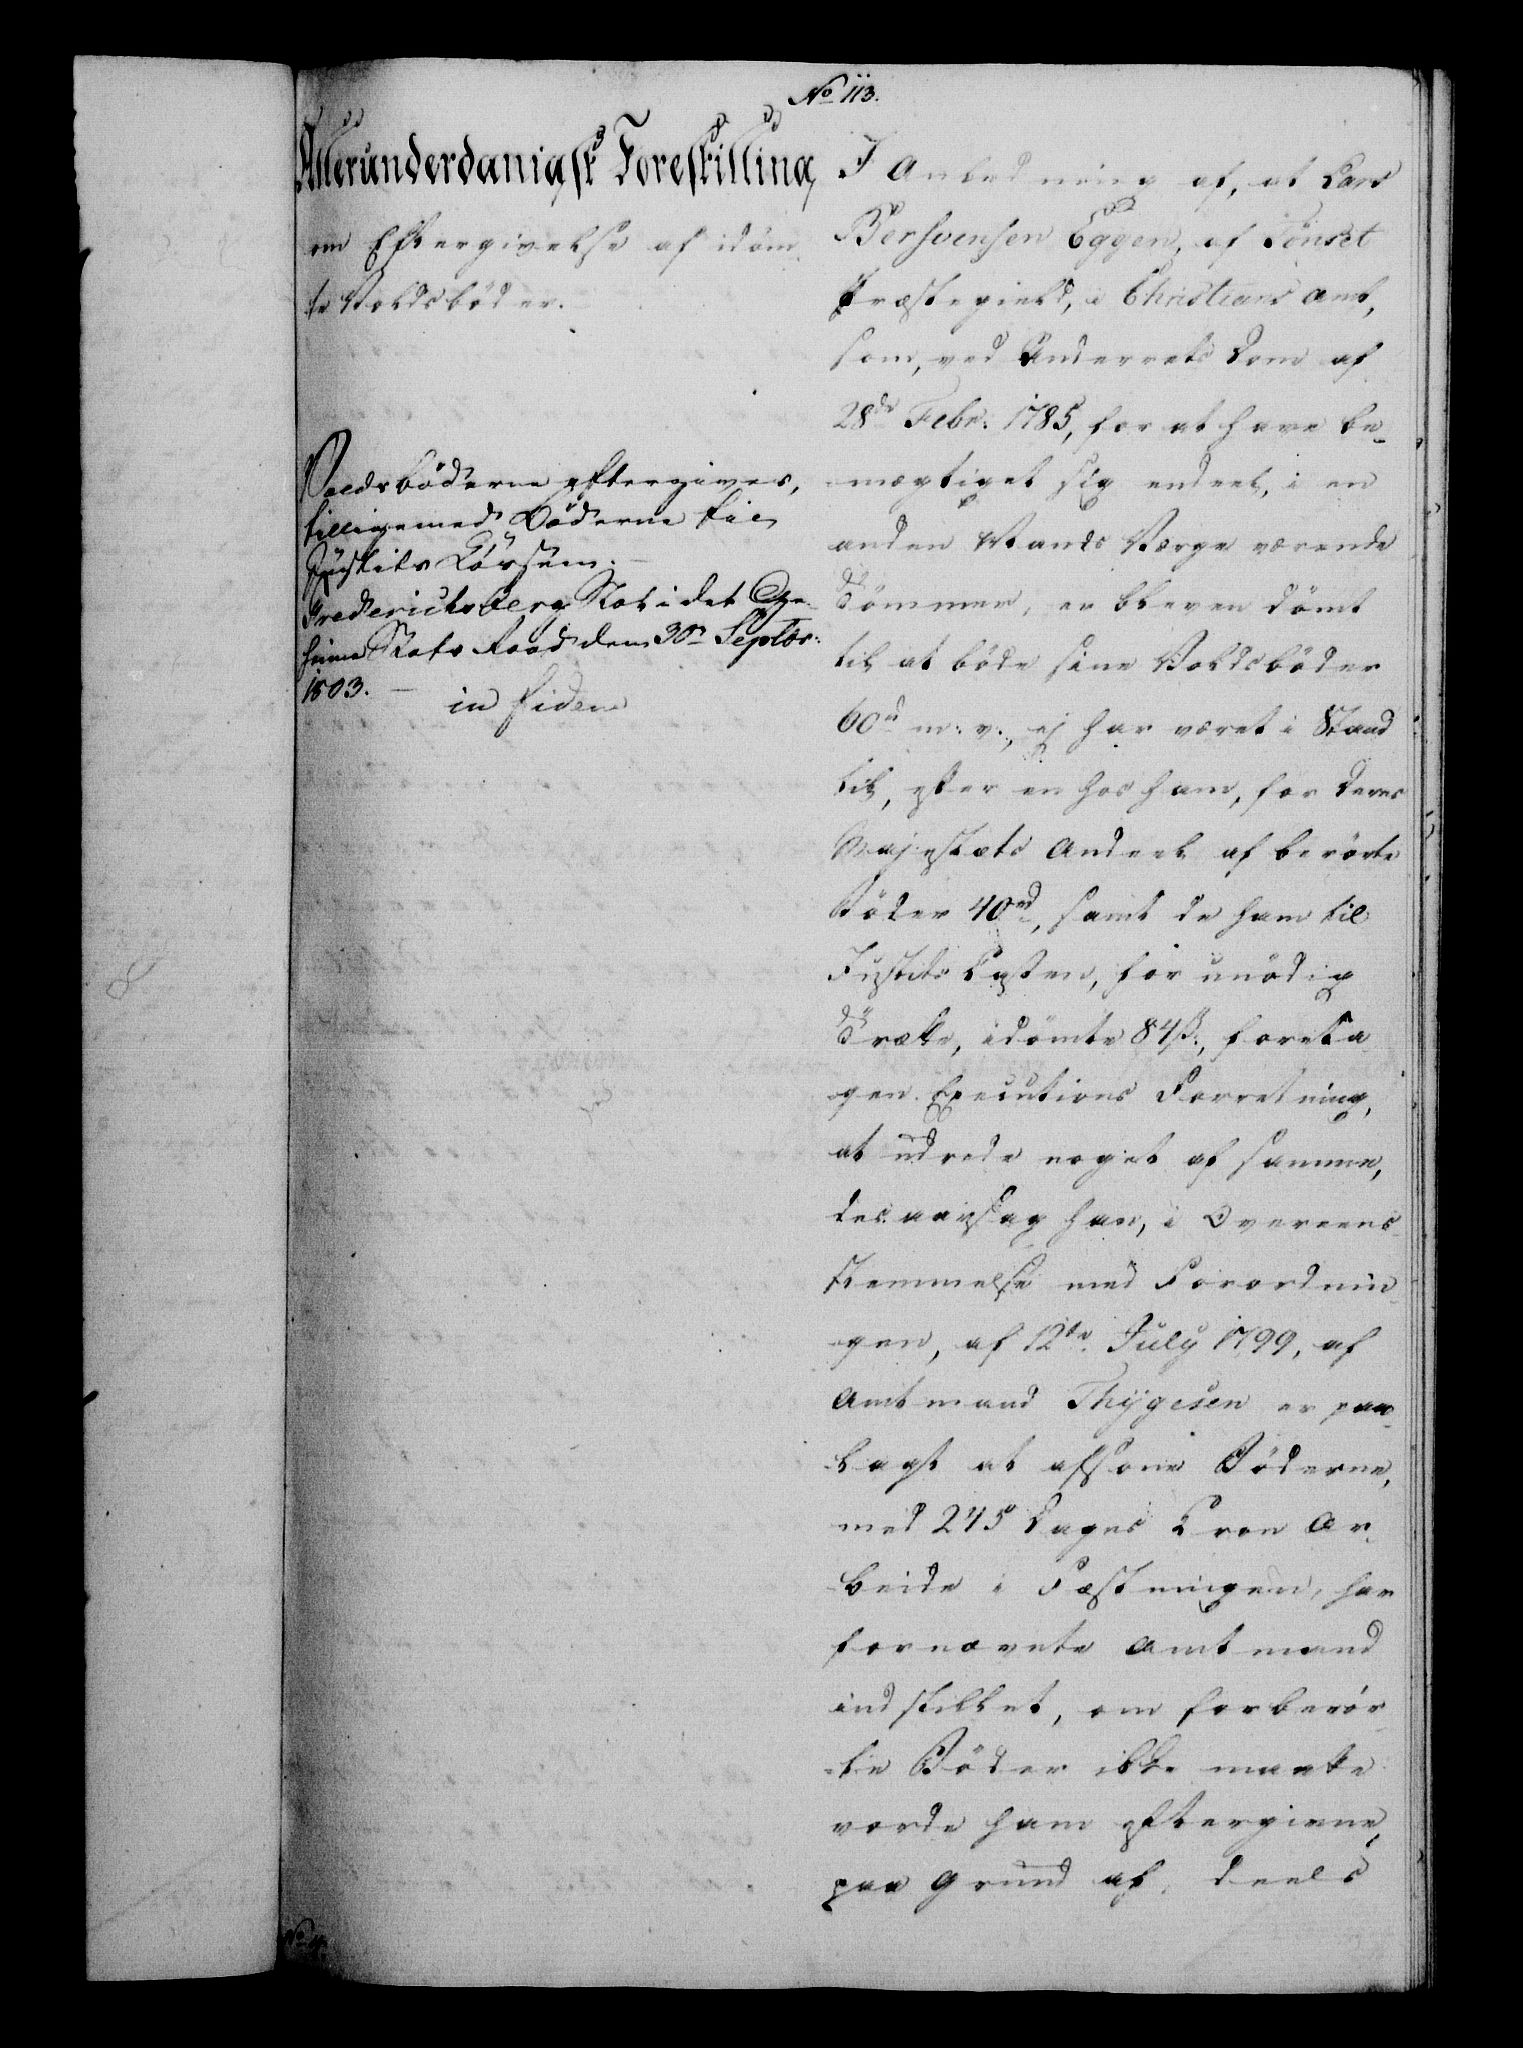 No 113.
Allerunderdanigst Forestilling
om Eftergivelse af idöm
te Voldsböder.
Voldsböderne eftergives,
tilligemed Böderne til
Justits Cassen. —
Frederichsberg Slot i det Ge-
heime Stats Raad den 30te Septbr:
1803. —
in fidem
I Anledning af, at Lars
Bersvensen Eggen, af Tönset
Præstegield, i Christians Amt,
som, ved Underrets Dom af
28de Febr: 1785, for at have be-
mægtiget sig endeel, i en
anden Mands Værge værende
Tömmer, er bleven dömt
til at böde sine Voldsböder
60 rd m: v:, ej har været i Stand
til, efter en hos ham, for Deres
Majestæts Andeel af berörte
Böder 40 rd, samt de ham til
Justits Cassen, for unödig
Trætte, idömte 84 s:, foreta-
gen Executions Forretning,
at udrede noget af samme,
desaarsag han, i Overeens-
stemmelse med Forordnin-
gen, af 12te July 1799, af
Amtmand Thygesen er paa-
lagt at afsone Böderne,
med 245 Dages Cron Ar-
beide i Fæstningen, har
fornævnte Amtmand
indstillet, om forberör-
te Böder ikke maatte
vorde ham eftergivne,
paa Grund af, deels